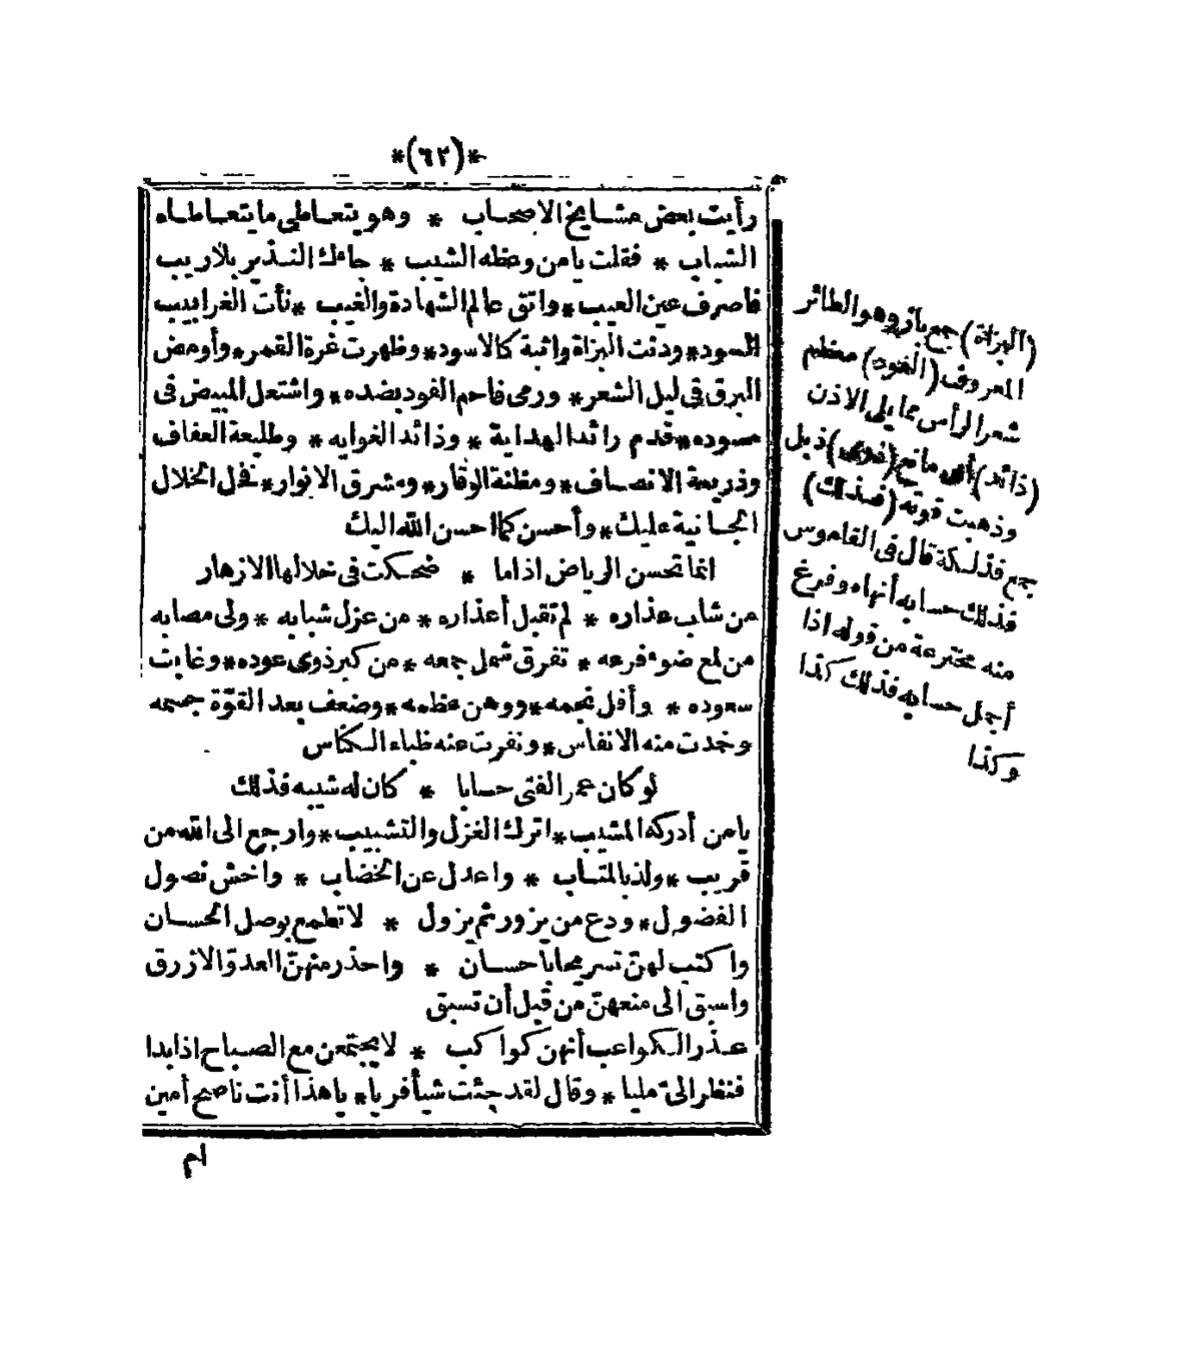 *(٦٢)*
رأيت بعض مشايخ الاصحاب * وهو يتعاطى ما يتعاطاه
الشباب * فقلت يا من وعظه الشيب * جاءك النذير بلا ريب
فاصرف عين العيب * واتق عالم الشهادة والغيب * نأت الغرابيب
السود * ودنت البزاة واثبة كالاسود * وظهرت غرة القمر * وأومض
البرق في ليل الشعر * ورمى فاحم الفود بضده * واشتعل المبيض فى
مسوده * قدم رائد الهداية * وذائد الغوايه * وطليعة العفاف
وذريعة الانصاف * ومظنة الوقار * ومشرق الانوار * فخل الخلال
الجانية عليك * وأحسن كما احسن الله اليك
انما تحسن الرياض اذا ما * ضحكت فى خلالها الازهار
من شاب عذاره * لم تقبل أعذاره * من عزل شبابه * ولى مصابه
من لمع ضوء فرعه * تفرق شمل جمعه * من كبر ذوى عوده * وغابت
سعوده * وأفل نجمه * ووهن عظمه * وضعف بعد القوّة جسمه
وخمدت منه الانفاس * ونفرت عنه ظباء الكناس
لو كان عمر الفتى حسابا * كان له شيبه فذلك
يا من أدركه المشيب * اترك الغزل والتشبيب * وارجع الى الله من
قريب * ولذ بالمتاب * واعدل عن الخضاب * واخش نصول
الفضول * ودع من يزور ثم يزول * لا تطمع بوصل الحسان
واكتب لهنّ تسريحا باحسان * واحذر منهنّ العدوّ الازرق
واسبق الى منعهنّ من قبل أن تسبق
عذر الكواعب أنهن كواكب * لا يجتمعن مع الصباح اذا بدا
فنظر الىّ مليا * وقال لقد جئت شيأ فريا * يا هذا أنت ناصح أمين
لم
(البزاة) جمع باز وهو الطائر
المعروف (الفود) معظم
شعر الرأس مما يلى الاذن
(ذائد) أى مانع (ذوى) ذبل
وذهبت قوته (فذلك)
جمع فذلكة قال فى القاموس
فذلك حسابه أنهاه وفرغ
منه مخترعة من قوله اذا
أجمل حسابه فذلك كذا
وكذا